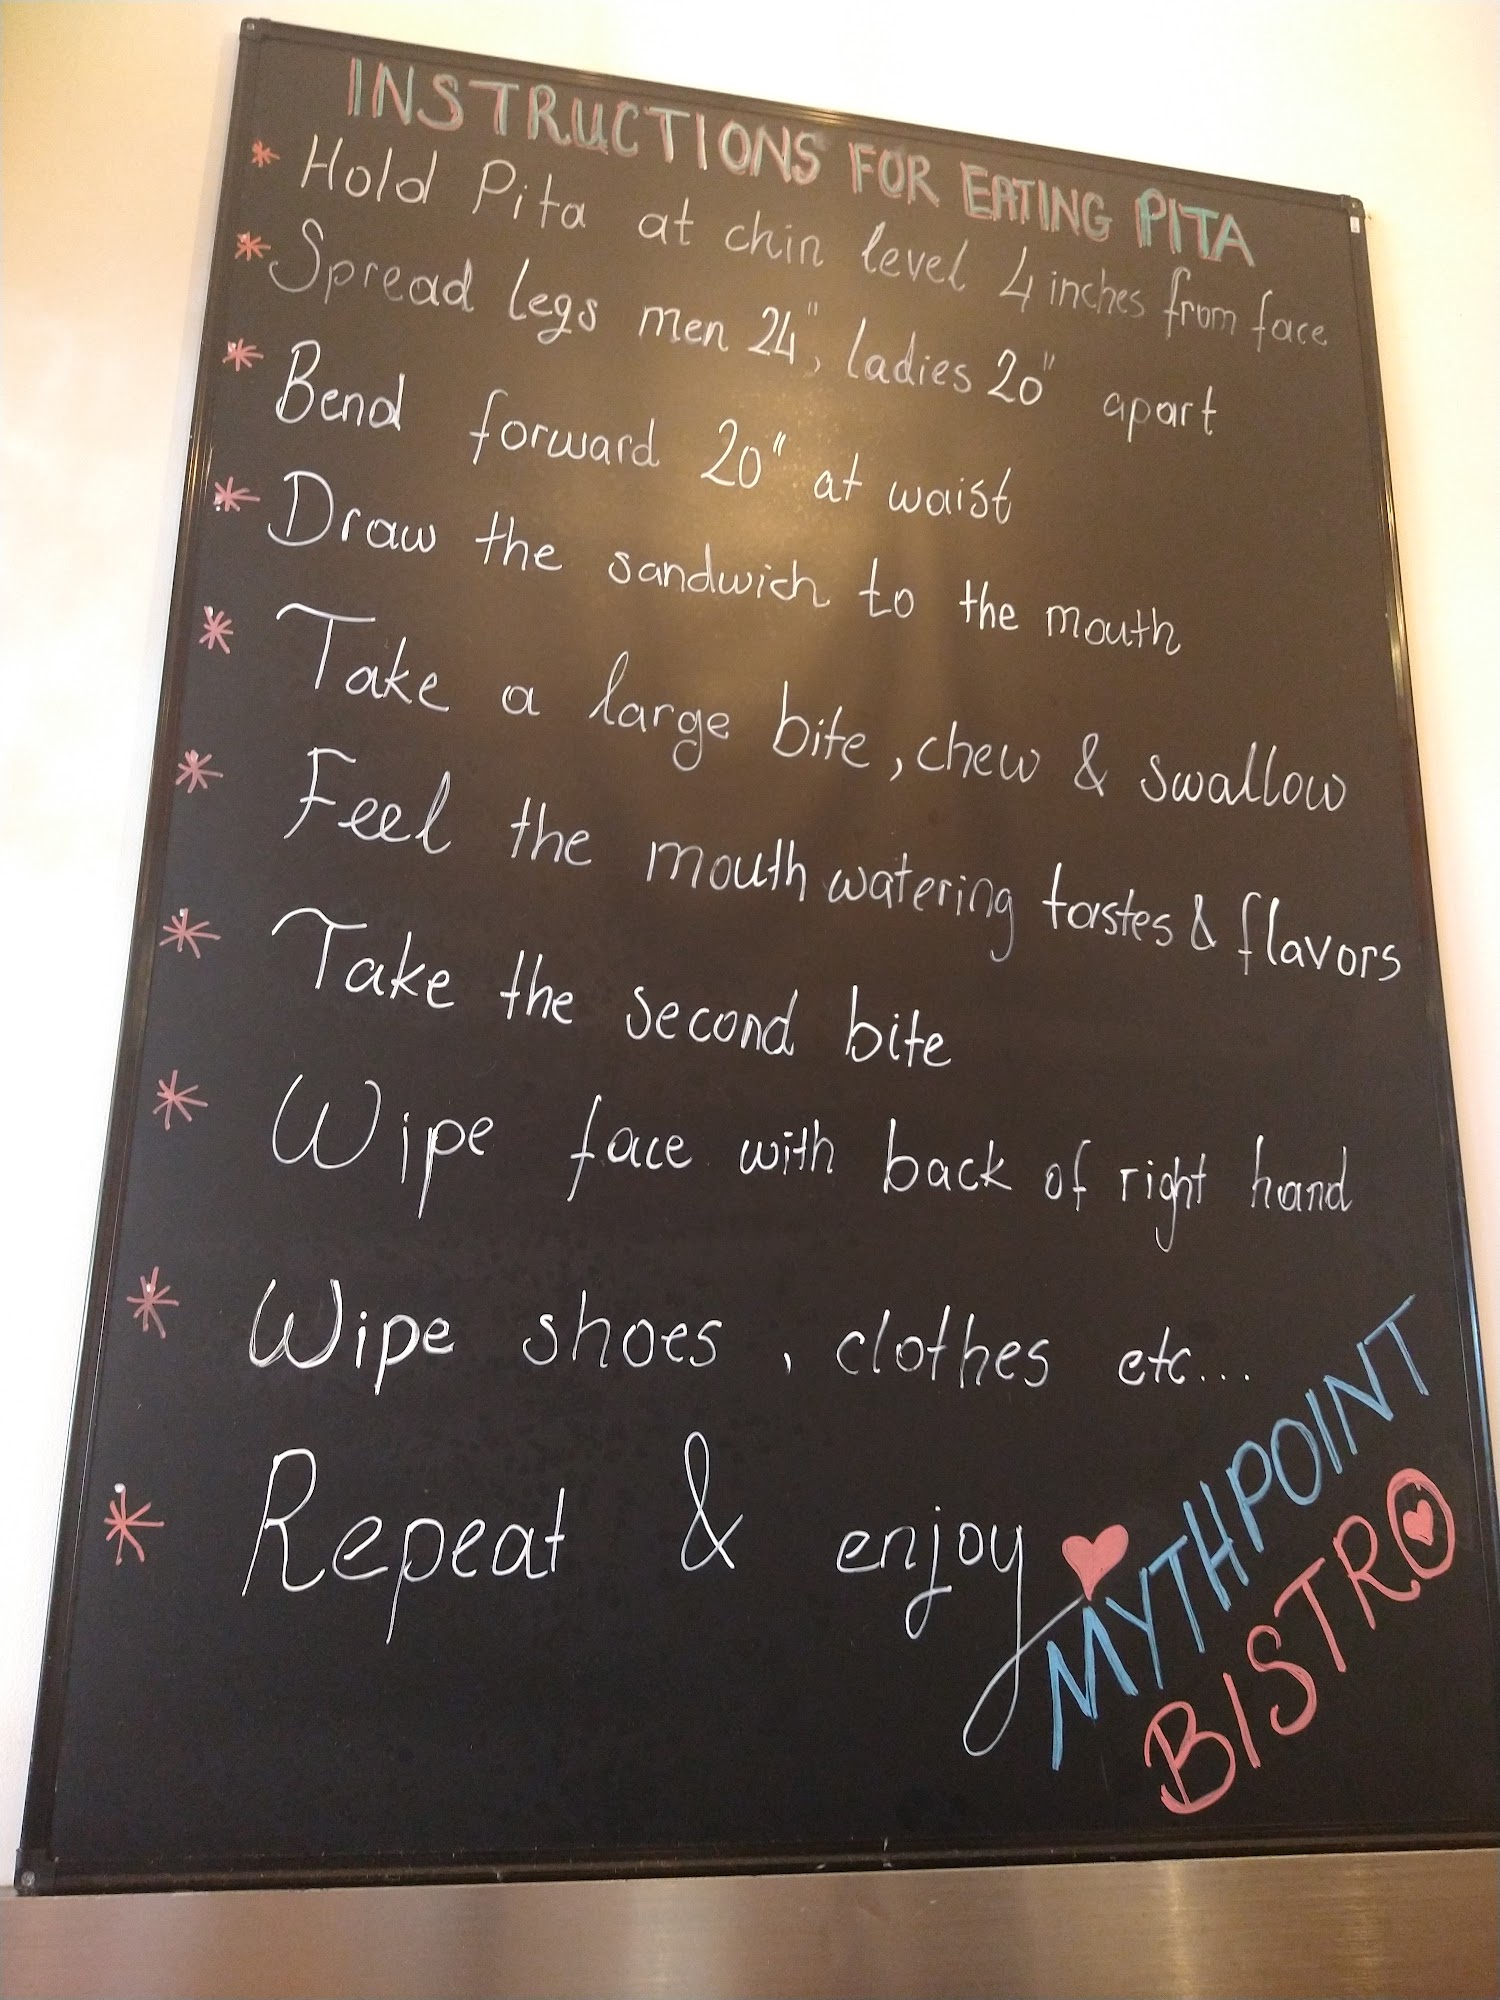 INSTRUCTIONS FOR EATING PITA
* Hold Pita at chin level 4 inches from face
* Spread legs men 24", ladies 20" apart
* Bend forward 20" at waist
* Draw the sandwich to the mouth
* Take a large bite, chew & swallow
* Feel the mouth watering tastes & flavors
* Take the second bite
* Wipe face with back of right hand
* Wipe shoes, clothes etc...
* Repeat & enjoy
MYTHPOINT
BISTRO